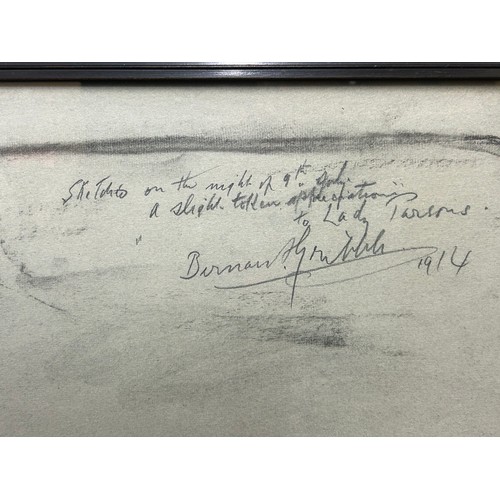 Sketched on the night of 9th July.
A slight token appreciation
to Lady Parsons.
Bernard Gribble
1914